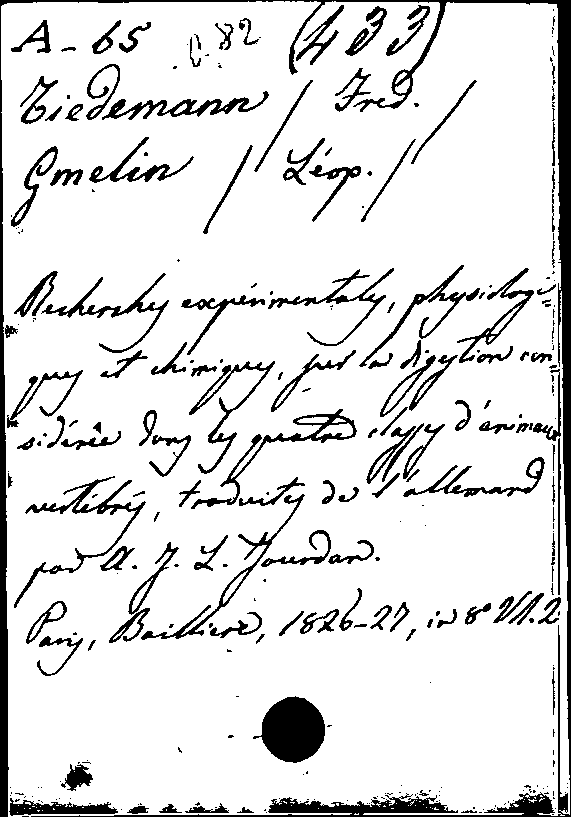 A-65 C.82 (433)
Tiedemann / Fred. /
Gmelin / Léop. /
Recherches expérimentales, physiologi=
ques et chimiques, sur la digestion con=
sidérée dans les quatre classes d'animaux
vertébrés, traduites de l'allemand
par A. J. L. Jourdan.
Paris, Baillière, 1826-27, in 8°